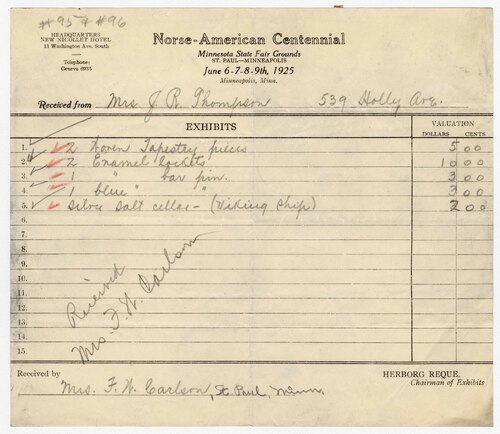 #95 & #96
HEADQUARTERS
NEW NICOLLET HOTEL
11 Washington Ave. South
Telephone:
Geneva 6935
Norse-American Centennial
Minnesota State Fair Grounds
ST. PAUL—MINNEAPOLIS
June 6-7-8-9th, 1925
Minneapolis, Minn.
Received from Mrs J. R. Thompson 539 Holly Ave.
EXHIBITS VALUATION
DOLLARS CENTS
1. 2 Woven Tapestry pieces 5 00
2. 2 Enamel lockets 10 00
3. 1 " bar pin. 3 00
4. 1 blue " " 3 00
5. Silver Salt cellar - (Viking Ship) 2 00
6.
7.
8.
9.
10.
11.
12.
13.
14.
15.
Received
Mrs. F. W. Carlson
Received by Mrs. F. W. Carlson, St. Paul, Minn.
HERBORG REQUE,
Chairman of Exhibits